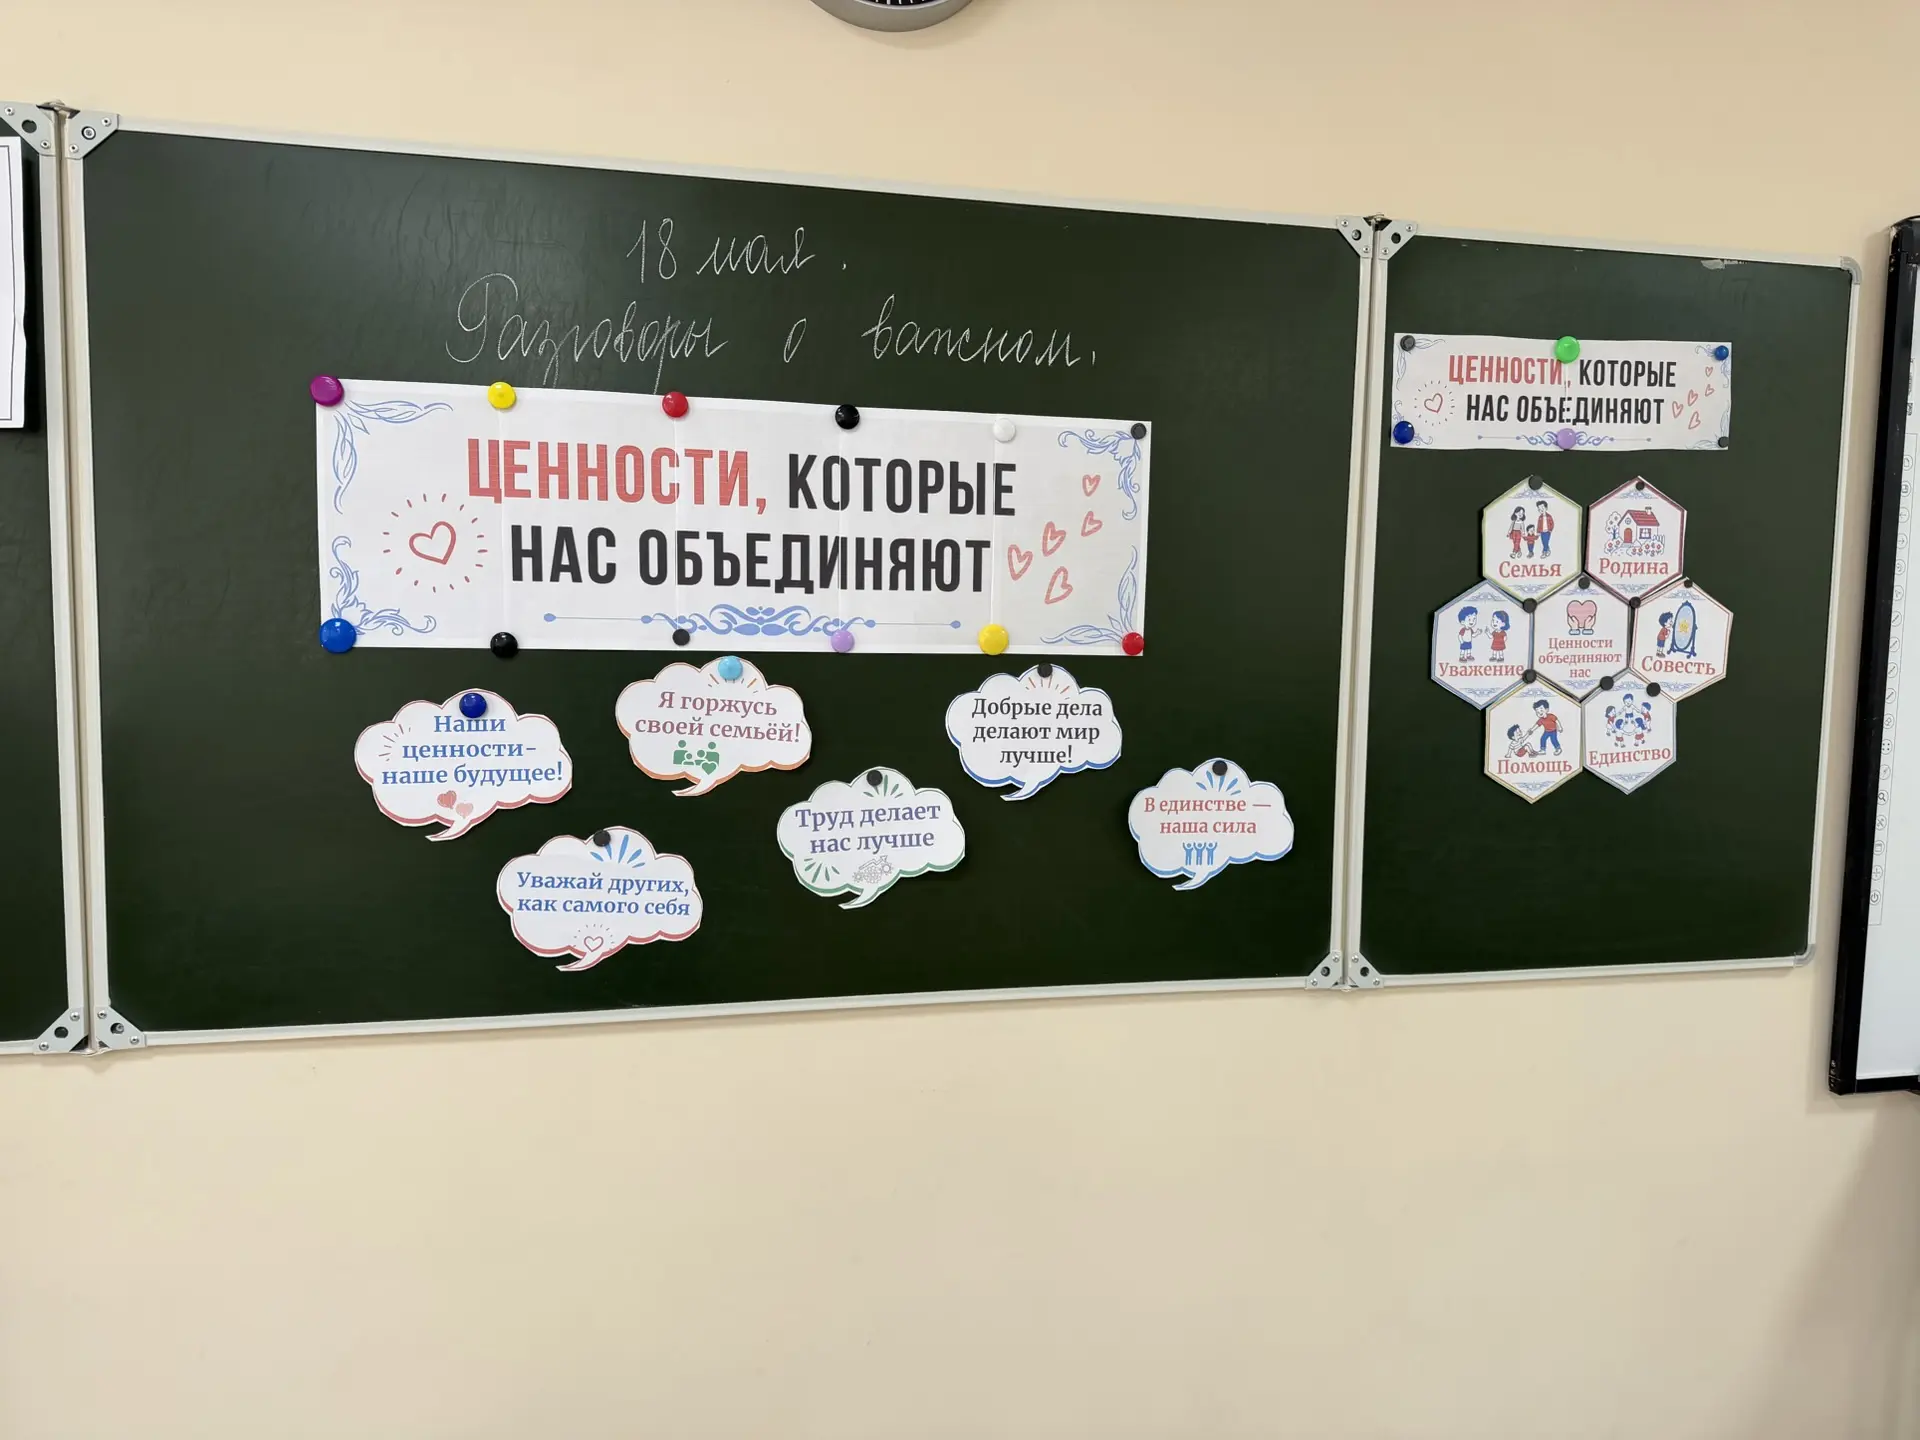 18 мая.
Разговоры о важном.
ЦЕННОСТИ, КОТОРЫЕ
НАС ОБЪЕДИНЯЮТ
Наши
ценности–
наше будущее!
Я горжусь
своей семьёй!
Добрые дела
делают мир
лучше!
Уважай других,
как самого себя
Труд делает
нас лучше
В единстве —
наша сила
ЦЕННОСТИ, КОТОРЫЕ
НАС ОБЪЕДИНЯЮТ
Семья
Родина
Уважение
Ценности
объединяют
нас
Совесть
Помощь
Единство